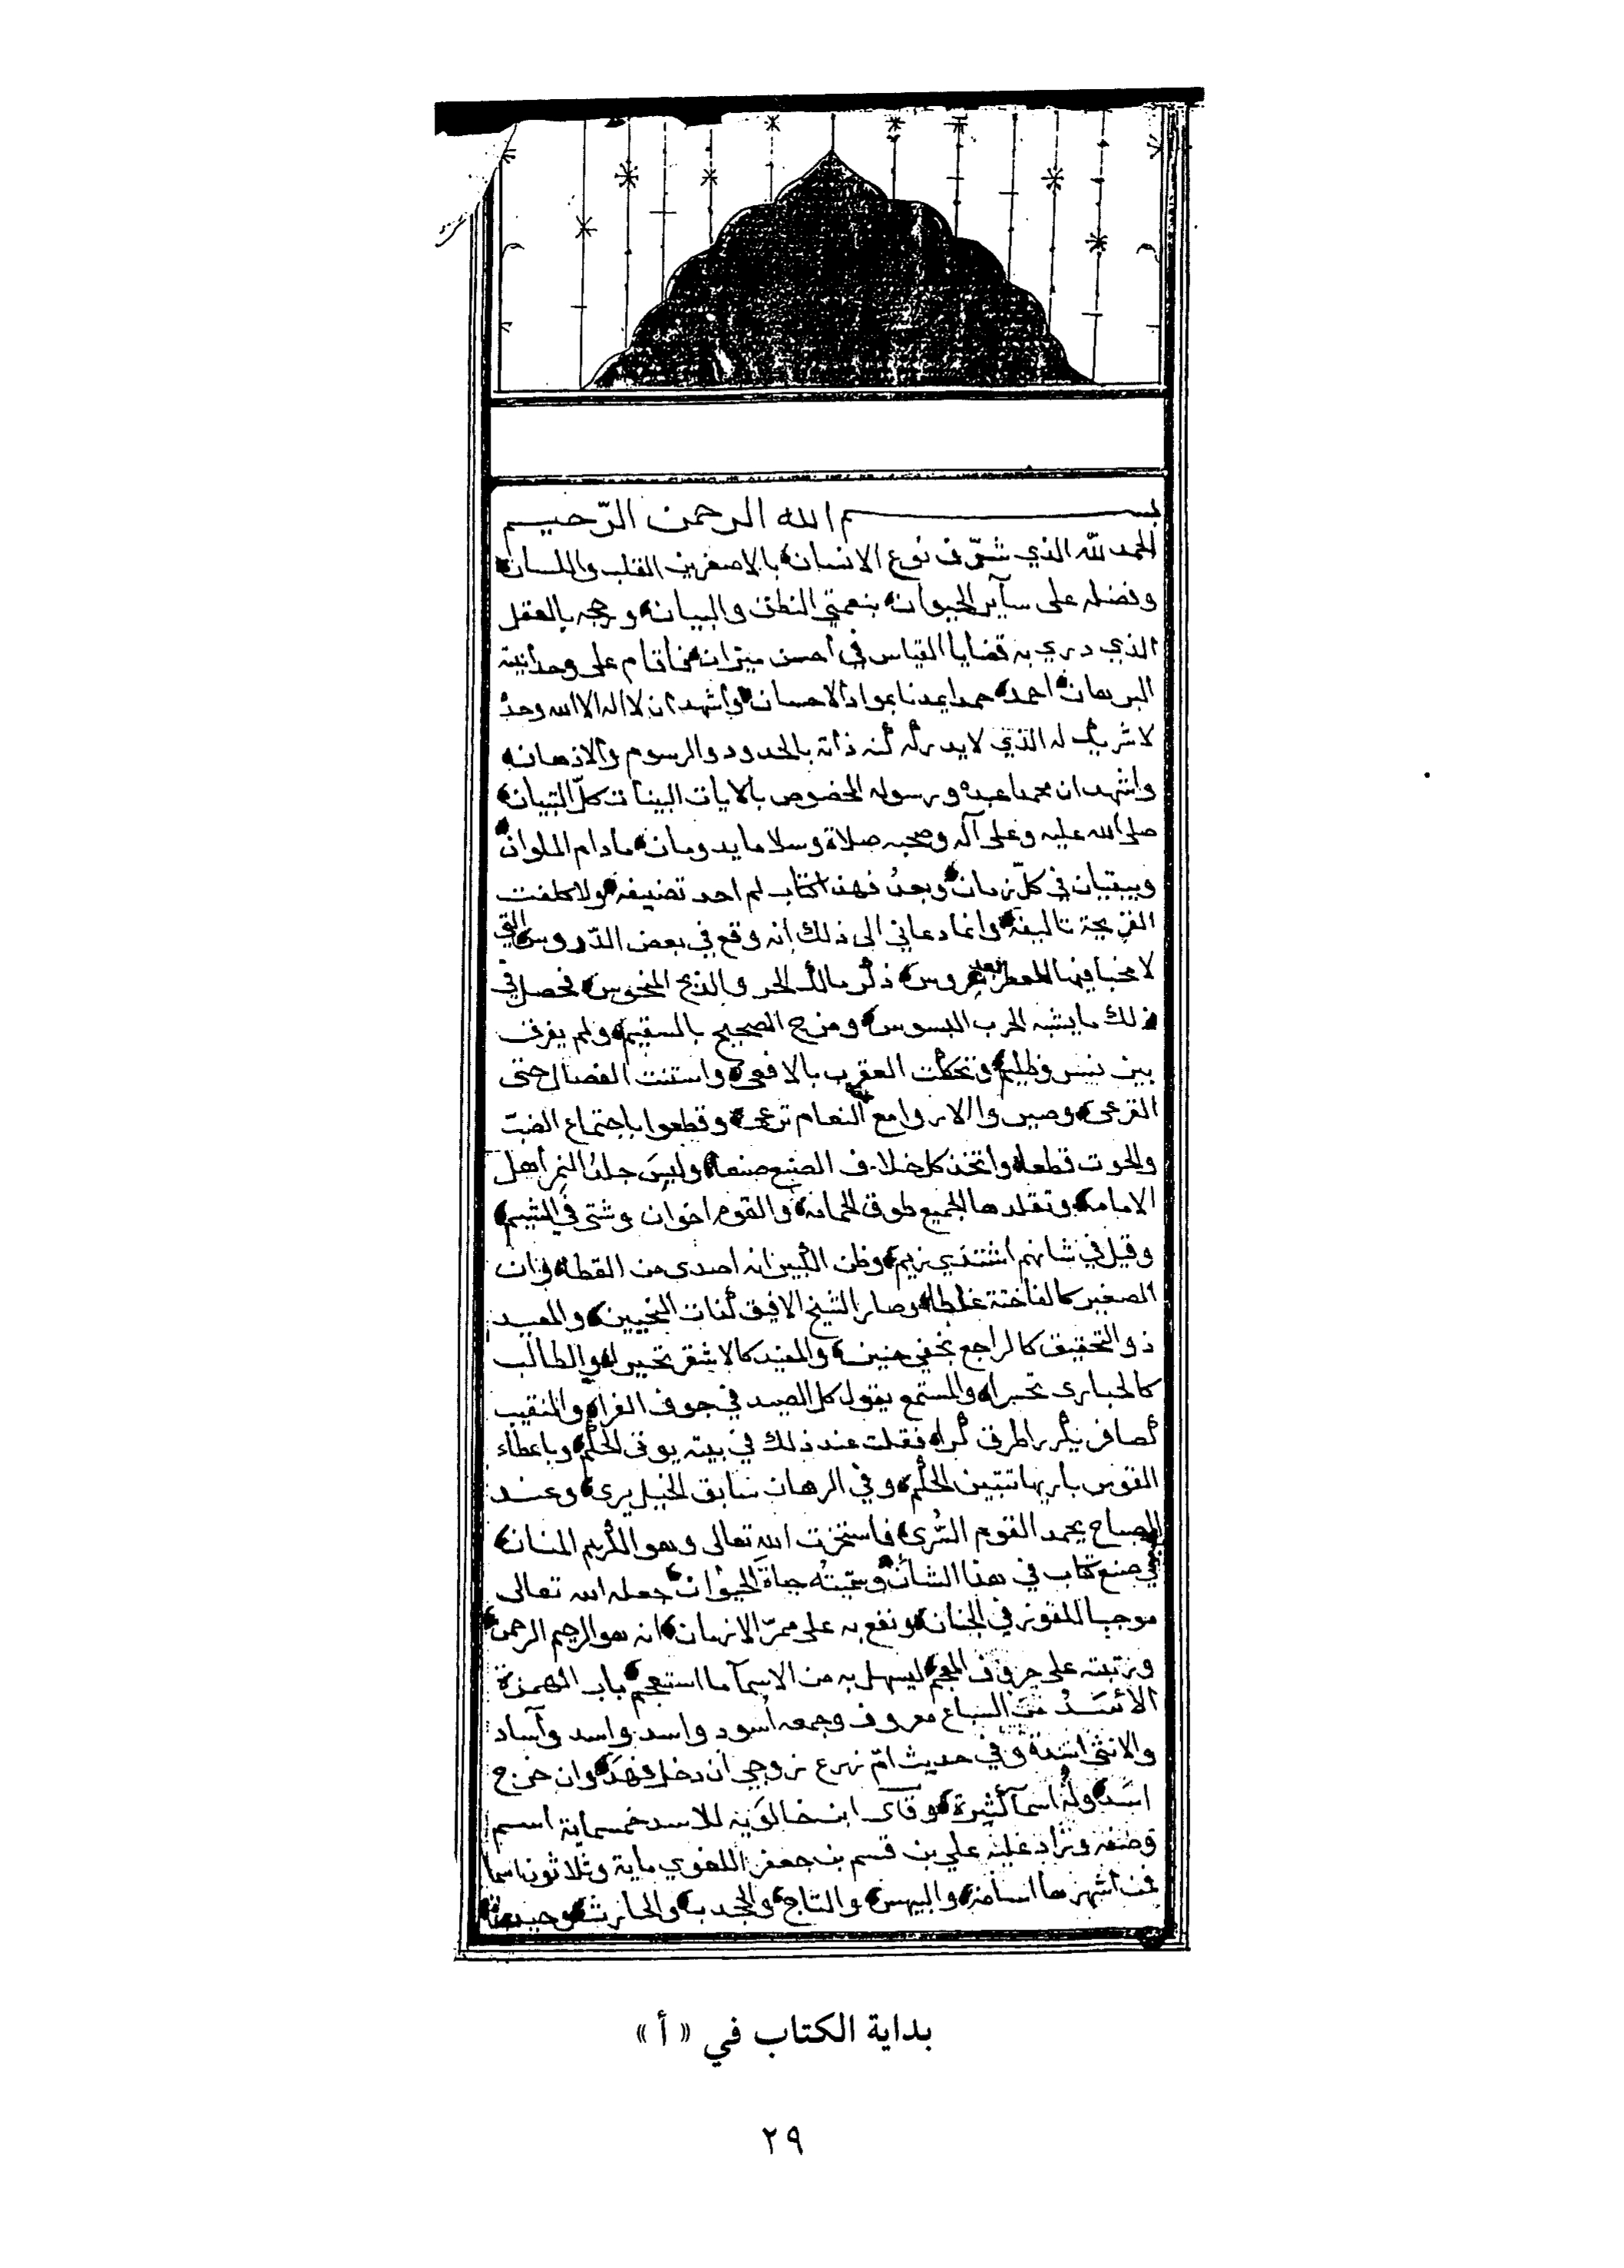 بسم الله الرحمن الرّحيم
الحمد لله الذي شرّف نوع الانسان بالاصغرين القلب واللسان
وفضله على سآير الحيوان بنعمتي النطق والبيان ورجحه بالعقل
الذي دري به قضايا القياس في احسن ميزان فاقام على وحدانيته
البرهان احمده حمدا يمدنا بمواد الاحسان واشهد ان لا اله الا الله وحده
لا شريك له الذي لا يدرك كنه ذاته بالحدود والرسوم والاذهان
واشهد ان محمدا عبده ورسوله المخصوص بالايات البينات كلّ التبيان
صلى الله عليه وعلى آله وصحبه صلاة وسلاما يدومان مادام الملوان
ويبقيان في كلّ زمان وبعد فهذا كتاب لم احد تصنيفه ولا كلفت
القريحة تاليفه وانما دعاني الى ذلك انه وقع في بعض الدّروس التي
لا مخبا فيها لعطر بعد عروس ذكر مالك الحزين والذيخ المنحوس فحصل في
ذلك ما يشبه حرب البسوس ومزج الصحيح بالسقيم ولم يفرق
بين نسر وظليم وتحككت العقرب بالافعى واستنت الفصال حتى
القرعى وصيروا الاروى مع النعام ترعى وقطعوا باجتماع الضبّ
والحوت قطعا واتخذ كل خلاف الضبع صنعا ولبس جلد النمر اهل
الامامه وتقلدها الجميع طوق الحمامه والقوم اخوان وشتى في الشيم
وقيل في شانهم اشتدي زيم وظن الكبير انه اصدى من القطا وان
الصغير كالفاختة غلطا وصار الشيخ الافيق كذات النحيين والمعيد
ذو التحقيق كالراجع بخفي حنين والمفيد كالاشقر تحيرا والطالب
كالحبارى تحسرا والمستمع يقول كل الصيد في جوف الفرا والنقيب
كصافر يكرر اطرق كرا فقلت عند ذلك في بيته يوتى الحكم وباعطاء
القوس باريها تتبين الحكم وفي الرهان سابق الخيل يرى وعند
الصباح يحمد القوم السّرى فاستخرت الله تعالى وهو الكريم المنان
في صنع كتاب في هذا الشان وسمّيته حياة الحيوان جعله الله تعالى
موجبا للفوز في الجنان ونفع به على ممرّ الازمان انه هو الرحيم الرحمن
ورتبته على حروف المعجم ليسهل به من الاسمآ ما استعجم باب الهمزة
الأسد من السباع معروف وجمعه اسود واسد واسد وآساد
والانثى اسدة وفي حديث امّ زرع زوجي ان دخل فهد وان خرج
اسد وله اسمآ كثيرة وقال ابن خالويه للاسد خمسماية اسم
وصفة وزاد عليه علي بن قسم بن جعفر اللغوي ماية وثلاثون اسما
فمن اشهرها اسامة والبيهس والتاج والجخدب والحارث وحيدرة
بداية الكتاب في « أ »
٢٩